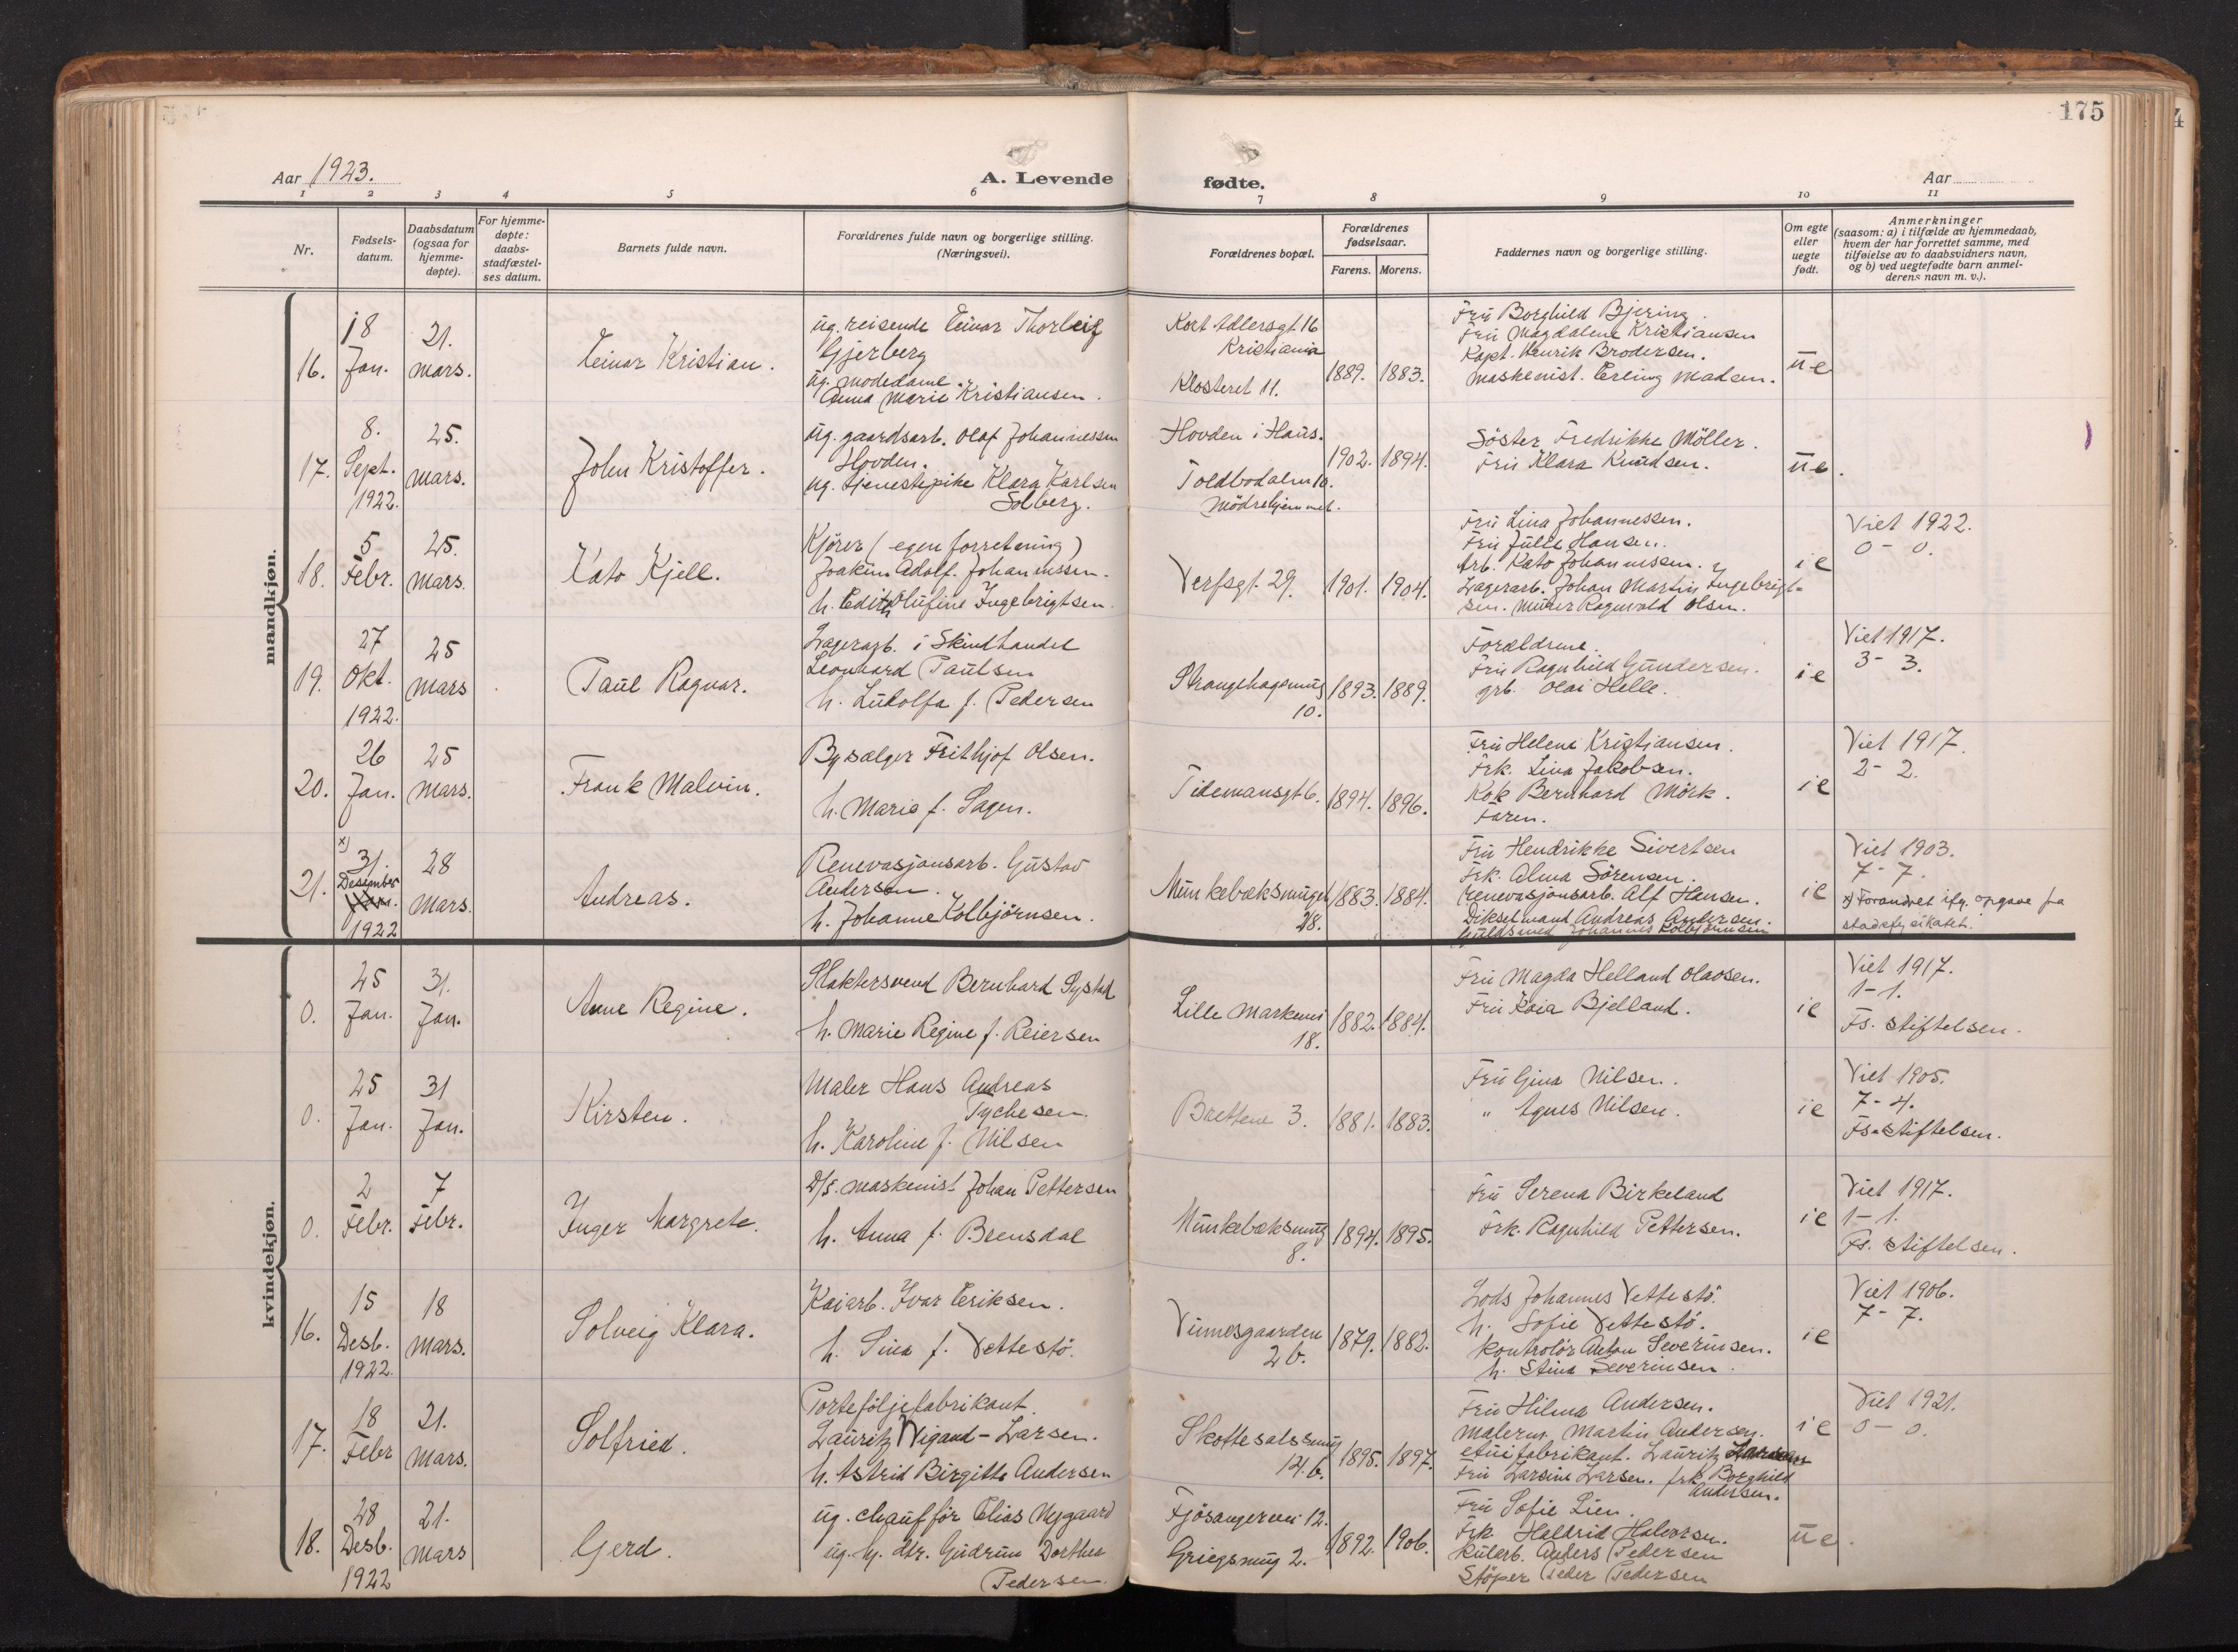 175
Aar 1923.
A. Levende fødte.
Aar
1 2 3 4 5 6 7 8 9 10 11
Nr.
Fødsels-
datum.
Daabsdatum
(ogsaa for
hjemme-
døpte).
For hjemme-
døpte:
daabs-
stadfæstel-
ses datum.
Barnets fulde navn.
Forældrenes fulde navn og borgerlige stilling.
(Næringsvei).
Forældrenes bopæl.
Forældrenes
fødselsaar.
Farens. Morens.
Faddernes navn og borgerlige stilling.
Om egte
eller
uegte
født.
Anmerkninger
(saasom: a) i tilfælde av hjemmedaab,
hvem der har forrettet samme, med
tilføielse av to daabsvidners navn,
og b) ved uegtefødte barn anmel-
derens navn m. v.).
mandkjøn.
16.
18
Jan.
21.
Mars.
Einar Kristian.
ug. reisende Einar Thorleif
Gjerberg
ug. modedame
Anna Marie Kristiansen.
Kort Adlersgt. 16
Kristiania
Klosteret 11.
1889. 1883.
Fru Borghild Bjering.
Fru Magdalene Kristiansen
Kapt. Henrik Brodersen.
Maskinist. Erling Madsen.
ue
17.
8.
Sept.
1922.
25.
Mars.
John Kristoffer.
ug. gaardsarb. Olaf Johannessen
Hovden.
ug. tjenestepike Klara Karlsen
Solberg.
Hovden i Haus.
Toldbodalm. 10.
Mødrehjemmet.
1902. 1894.
Søster Fredrikke Møller.
Fru Klara Knudsen.
ue.
18.
5
Febr.
25.
Mars.
Kato Kjell.
Kjører (egen forretning)
Joakim Adolf. Johannessen.
h. Edith Olufine Ingebrigtsen.
Verfsgt. 29.
1901. 1904.
Fru Lina Johannessen.
Fru Julle Hansen.
Arb. Kato Johannessen.
Lagerarb. Johan Martin Ingebrigt-
sen. Murer Ragnvald Olsen.
ie
Viet 1922.
0 - 0.
19.
27
Okt.
1922.
25
Mars
Paul Ragnar.
Lagerarb. i Skindhandel
Leonhard Paulsen
h. Ludolfa f. Pedersen
Strangehagsmug
10.
1893. 1889.
Forældrene.
Fru Ragnhild Gundersen.
arb. Olai Helle.
ie
Viet 1917.
3 - 3.
20.
26
Jan.
25
Mars.
Frank Malvin.
Bysælger Frithjof Olsen.
h. Marie f. Sagen.
Tidemansgt 6.
1894. 1896.
Fru Helene Kristiansen.
Frk. Lina Jakobsen.
Kok Bernhard Mørk.
Faren.
ie
Viet 1917.
2 - 2.
21.
x)
31.
Desember
Jan.
1922
28
Mars.
Andreas.
Renovasjonsarb. Gustav
Andersen.
h. Johanne Kolbjørnsen.
Munkebæksmuget
28.
1883. 1884.
Fru Hendrikke Sivertsen
Frk. Alma Sørensen.
Renovasjonsarb. Alf Hansen.
Dikselmand Andreas Andersen.
Guldsmed Johannes Kolbjørnsen
ie
Viet 1903.
7 - 7.
x) Forandret ifg. opgave fra
stadsfysikatet.
kvindekjøn.
0.
25
Jan.
31.
Jan.
Anne Regine.
Slaktersvend Bernhard Systad
h. Marie Regine f. Reiersen
Lille Markevei
18.
1882. 1884.
Fru Magda Helland Olavsen.
Fru Kaia Bjelland.
ie
Viet 1917.
1 - 1.
Fs. stiftelsen.
0.
25
Jan.
31
Jan.
Kirsten.
Maler Hans Andreas
Tychesen.
h. Karoline f. Nilsen
Brettene 3.
1881. 1883.
Fru Gina Nilsen.
" Agnes Nilsen.
ie
Viet 1905.
7 - 4.
Fs. stiftelsen.
0.
2
Febr.
7
Febr.
Inger Margrete.
D/s. maskinist Johan Pettersen
h. Anna f. Brensdal
Munkebæksmug
8.
1894. 1895.
Fru Serena Birkeland
Frk. Ragnhild Pettersen.
ie
Viet 1917.
1 - 1.
Fs. stiftelsen.
16.
15
Desb.
1922.
18
Mars.
Solveig Klara.
Kaiarb. Ivar Eriksen.
h. Sina f. Vettestø.
Vinnesgaarden
2 b.
1879. 1882.
Lods Johannes Vettestø.
h. Sofie Vettestø.
Kontrolør Anton Severinsen.
h. Stina Severinsen.
ie
Viet 1906.
7 - 7.
17.
18
Febr
21.
Mars.
Solfried.
Porteføljefabrikant
Lauritz Wigand-Larsen.
h. Astrid Birgitte Andersen
Skottesalssmug
14. b.
1895. 1897.
Fru Hilma Andersen.
Malerm. Martin Andersen.
etuifabrikant. Lauritz Larsen
Fru Larsine Larsen. frk. Borghild
Andersen.
ie
Viet 1921.
0 - 0.
18.
28
Desb.
1922
21.
Mars
Gerd.
ug. chauffør Elias Nygaard
ug. hj. dtr. Gudrun Dorthea
Pedersen.
Fjøsangervei 12.
Griegsmug 2.
1892. 1906.
Fru Sofie Lien.
Frk. Haldrid Halvorsen.
Kularb. Anders Pedersen
Støper Peder Pedersen
ue.